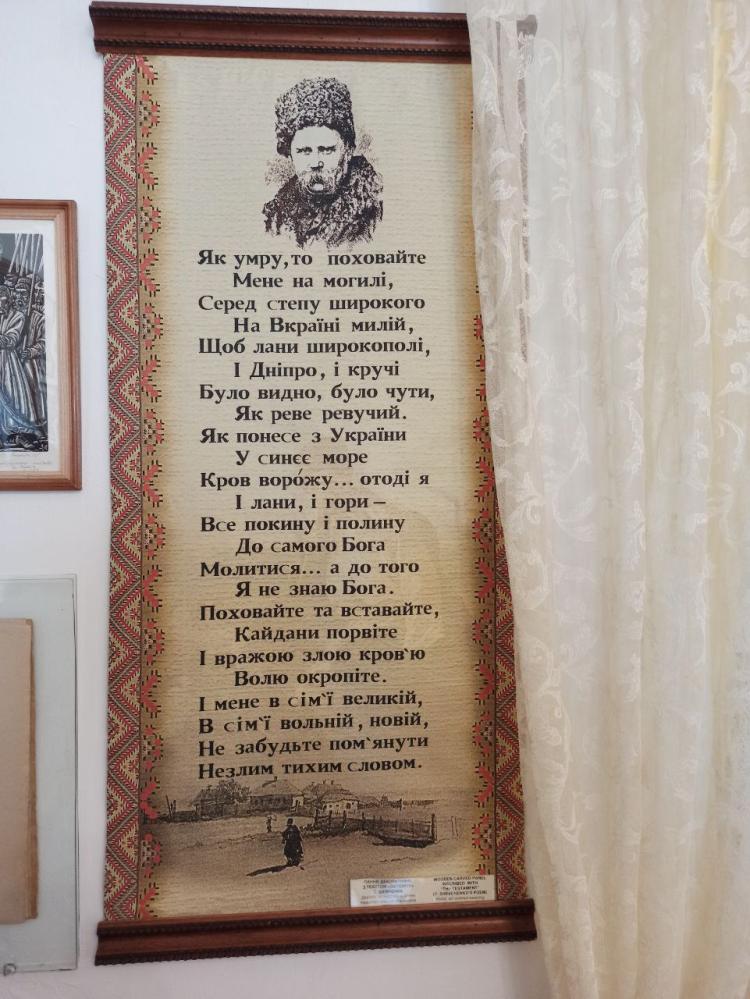 Як умру, то поховайте
Мене на могилі,
Серед степу широкого
На Вкраїні милій,
Щоб лани широкополі,
І Дніпро, і кручі
Було видно, було чути,
Як реве ревучий.
Як понесе з України
У синєє море
Кров воро́жу... отоді я
І лани, і гори –
Все покину і полину
До самого Бога
Молитися... а до того
Я не знаю Бога.
Поховайте та вставайте,
Кайдани порвіте
І вражою злою кров`ю
Волю окропіте.
І мене в сім`ї великій,
В сім`ї вольній, новій,
Не забудьте пом`янути
Незлим тихим словом.
WOODEN CARVED PANEL
INSCRIBED WITH
"The "TESTAMENT"